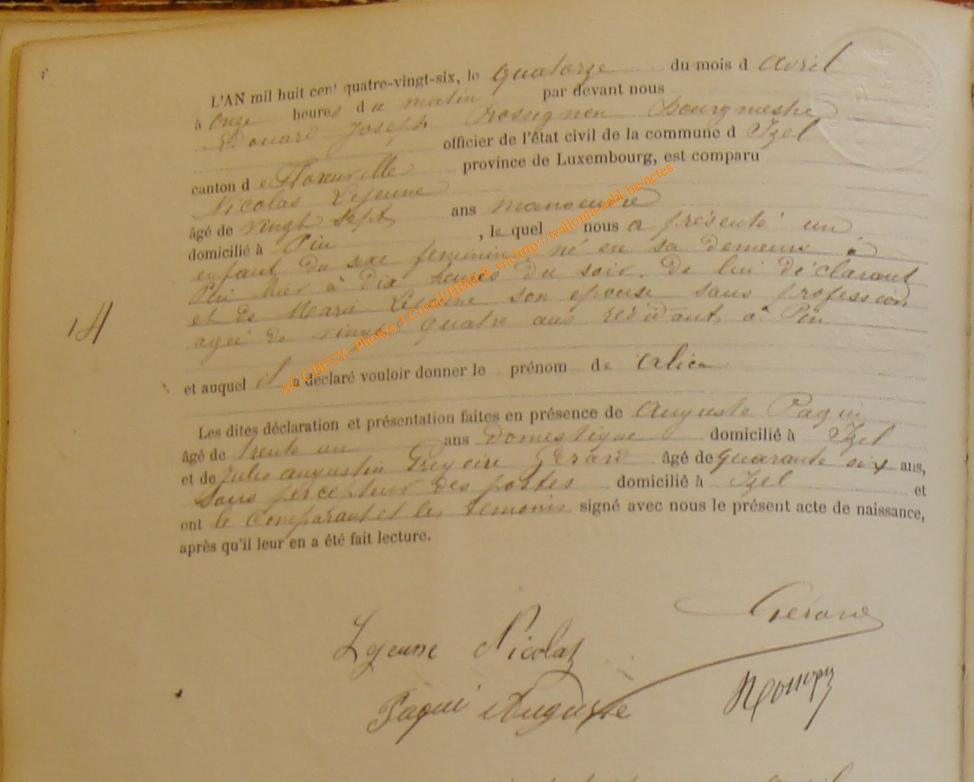 L'AN mil huit cent quatre-vingt-six, le quatorze du mois d avril
à onze heures d u matin par devant nous
Edouard Joseph Rossignon Bourgmestre
officier de l'état civil de la commune d Izel
canton d e Florenville province de Luxembourg, est comparu
Nicolas Lejeune
âgé de vingt sept ans manoeuvre
domicilié à Pin , le quel nous a présenté un
enfant du sexe feminin né en sa demeure à
Pin hier à dix heures du soir. De lui déclarant
et de Marie son epouse sans profession
agée de vingt quatre ans residant à Pin
14
et auquel il a déclaré vouloir donner le prénom de Alice
Les dites déclaration et présentation faites en présence de Auguste Paqui
âgé de trente un ans Domestique domicilié à Izel
et de Jules augustin Grégoire Gérard âgé de quarante six ans,
Sous percepteur des postes domicilié à Izel et
ont le Comparant et les témoins signé avec nous le présent acte de naissance,
après qu'il leur en a été fait lecture.
Gérard
Lejeune Nicolas
Paqui Auguste